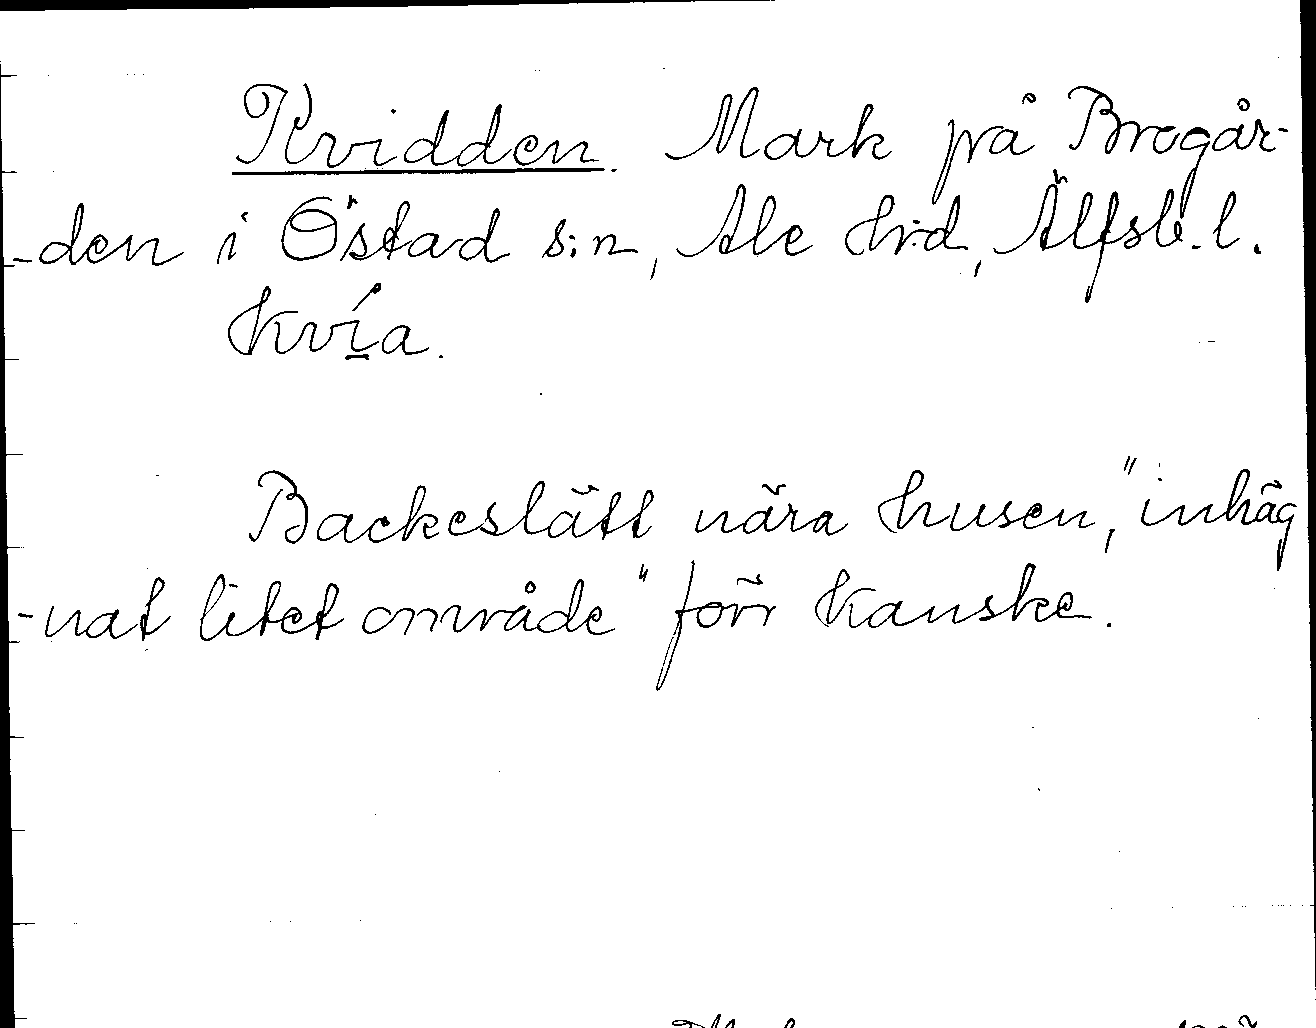 Kvidden. Mark på Brogår-
-den i Östad s:n, Ale h:d, Älfsb. l.
kvía.
Backeslätt nära husen, "inhäg
-nat litet område" förr kanske.